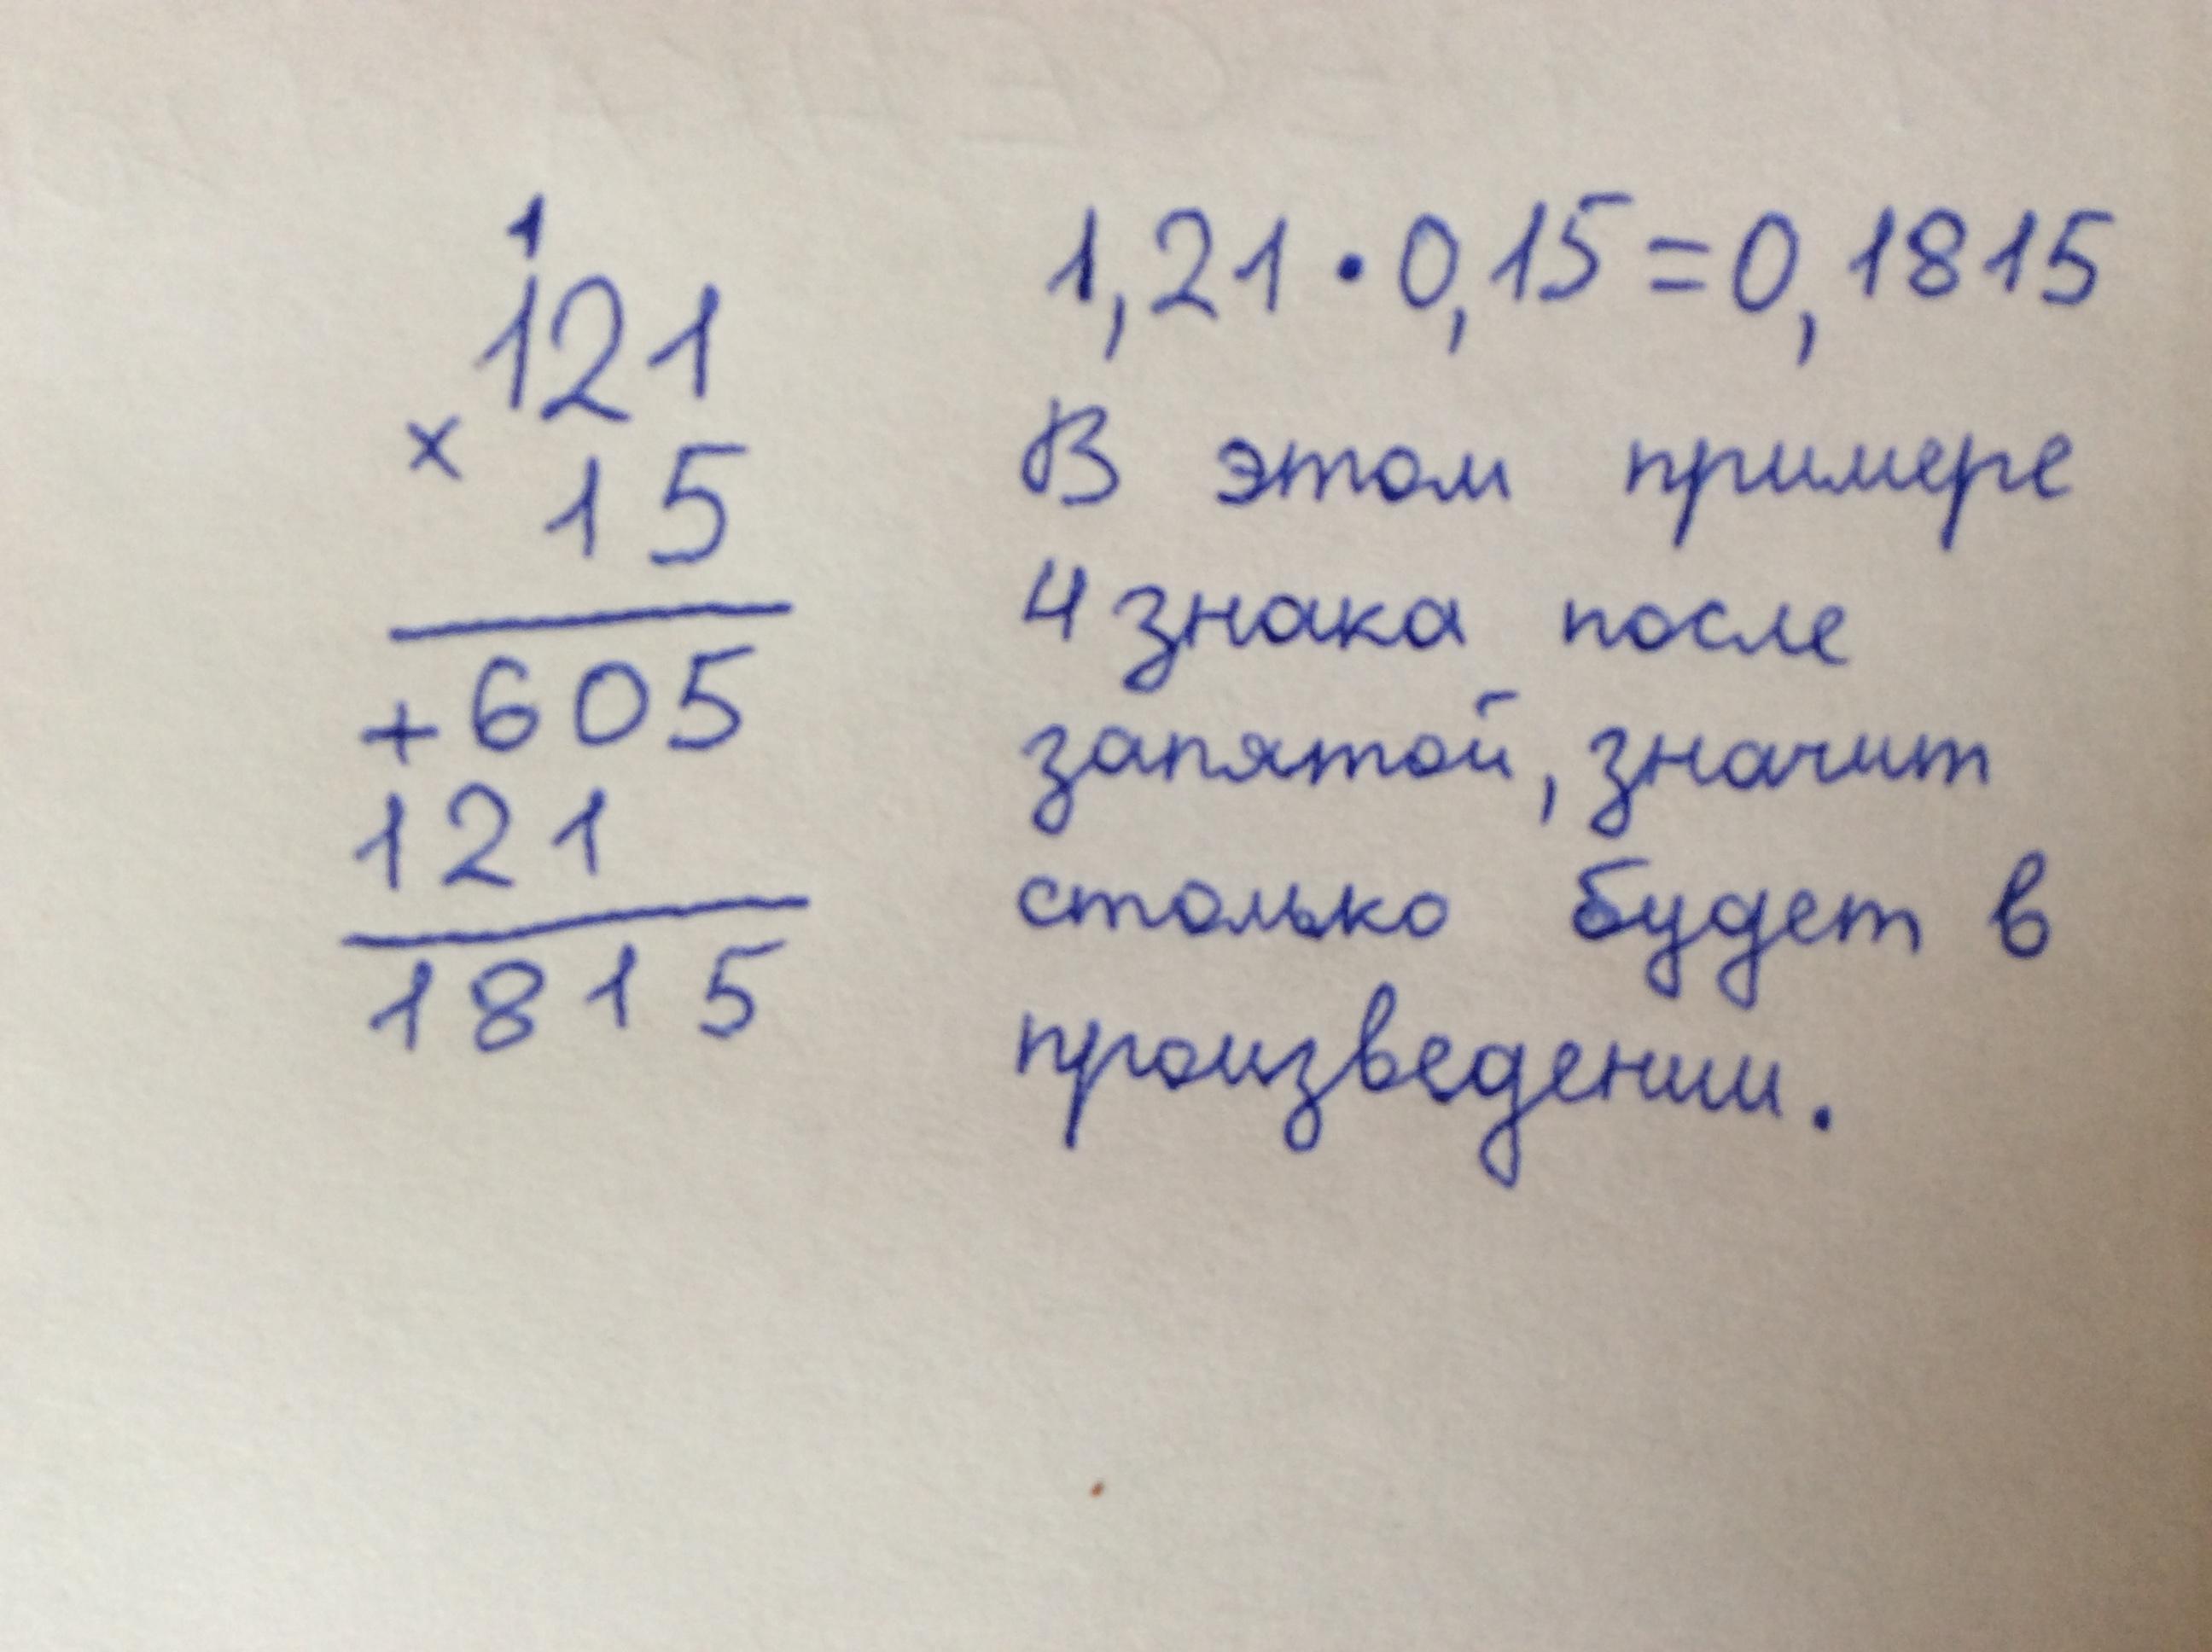 1
121
×
15
+605
121
1815
1,21·0,15=0,1815
В этом примере
4 знака после
запятой, значит
столько будет в
произведении.